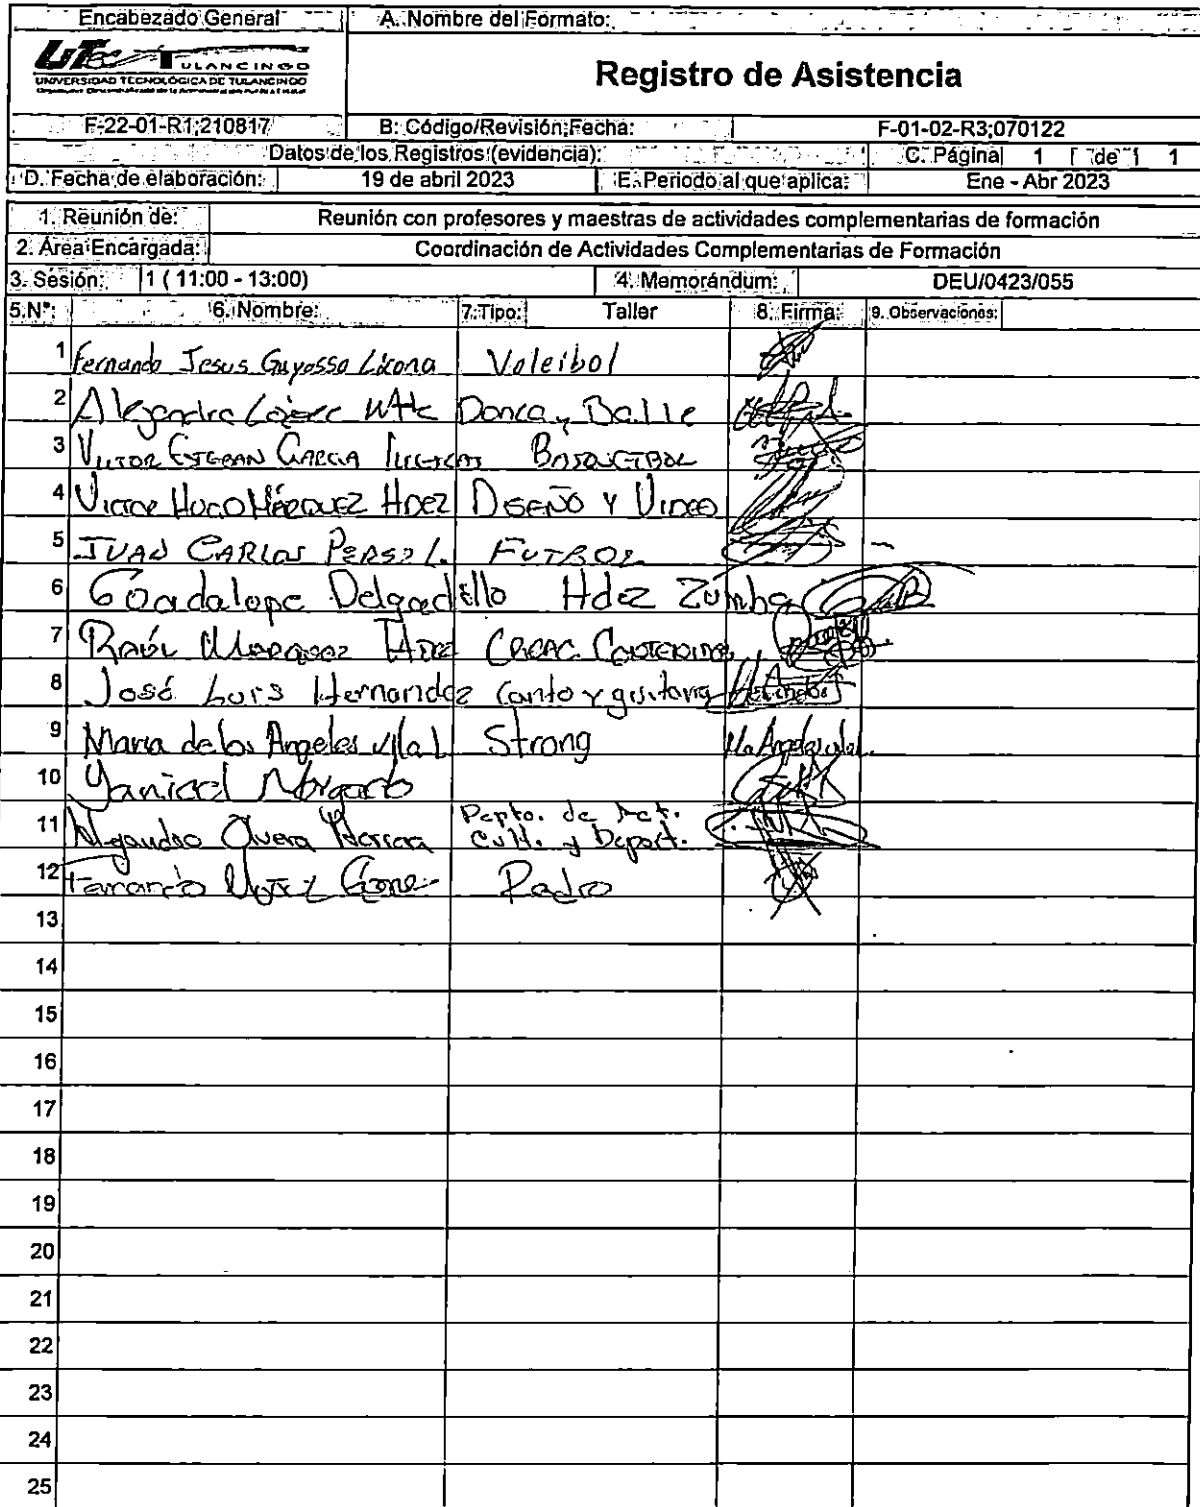 Encabezado General
A. Nombre del Formato:
TULANCINGO
UNIVERSIDAD TECNOLÓGICA DE TULANCINGO
Registro de Asistencia
F-22-01-R1;210817
B: Código/Revisión;Fecha:
F-01-02-R3;070122
Datos de los Registros (evidencia):
C. Página 1 de 1
D. Fecha de elaboración:
19 de abril 2023
E. Periodo al que aplica:
Ene - Abr 2023
1. Reunión de:
Reunión con profesores y maestras de actividades complementarias de formación
2. Área Encargada:
Coordinación de Actividades Complementarias de Formación
3. Sesión: 1 ( 11:00 - 13:00)
4. Memorándum:
DEU/0423/055
5.N°: 6. Nombre: 7. Tipo: Taller 8. Firma: 9. Observaciones:
1 Fernando Jesus Guyosso Licona Voleibol
2 Danca y Baile
3 Victor Esteban Garcia Basquetbol
4 Victor Hugo Márquez Hdez Diseño y Video
5 Juan Carlos Perez L. Futbol
6 Guadalupe Delgadillo Hdez Zumba
7 Raúl Marquez
8 José Luis Hernandez Canto y guitarra
9 Maria de los Angeles Vila L. Strong
10
11 Depto. de Act.
Cult. y Deport.
12
13
14
15
16
17
18
19
20
21
22
23
24
25